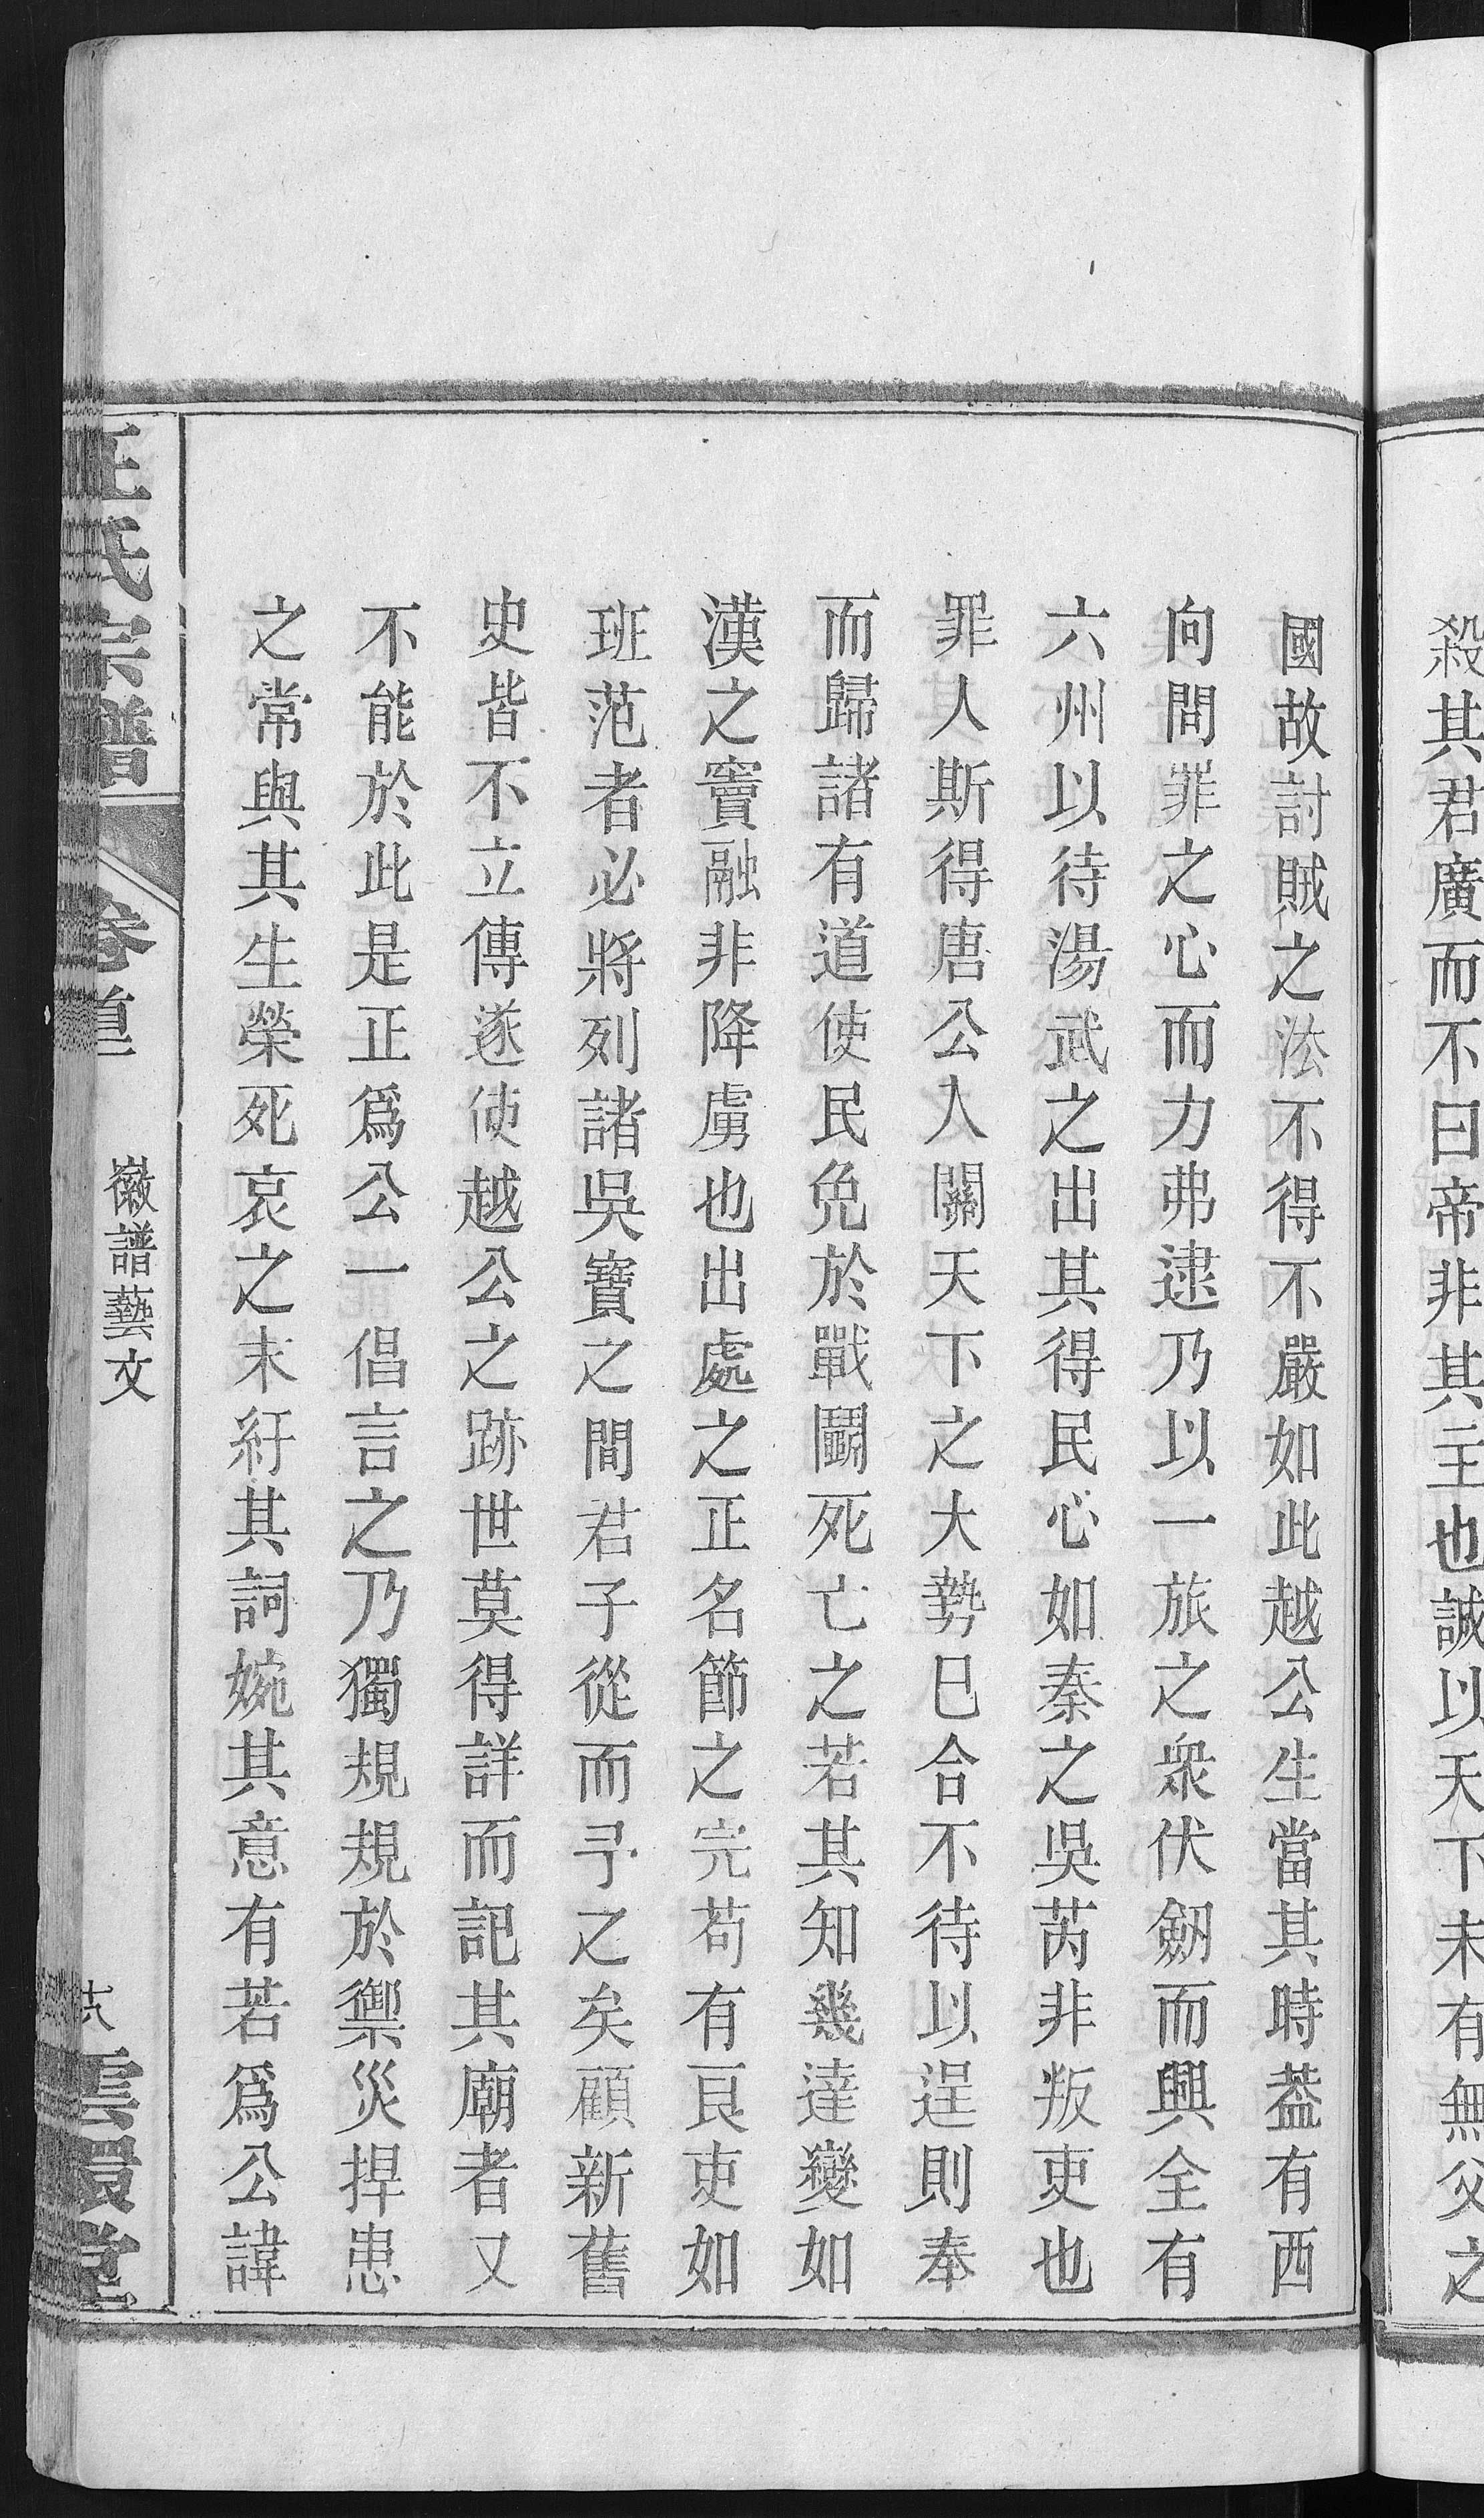 殺其君廣而不曰帝非其主也誠以天下未有無父之
國故討賊之法不得不嚴如此越公生當其時葢有西
向問罪之心而力弗逮乃以一旅之衆伏劒而興全有
六州以待湯武之出其得民心如秦之吳芮非叛吏也
罪人斯得唐公入關天下之大勢已合不待以逞則奉
而歸諸有道使民免於戰鬭死亡之若其知幾達變如
漢之竇融非降虜也出處之正名節之完苟有良吏如
班范者必將列諸吳寶之間君子從而予之矣顧新舊
史皆不立傳遂使越公之跡世莫得詳而記其廟者又
不能於此是正爲公一倡言之乃獨規規於禦災捍患
之常與其生榮死哀之末紆其詞婉其意有若爲公諱
汪氏宗譜
卷首
徽譜藝文
雲環堂